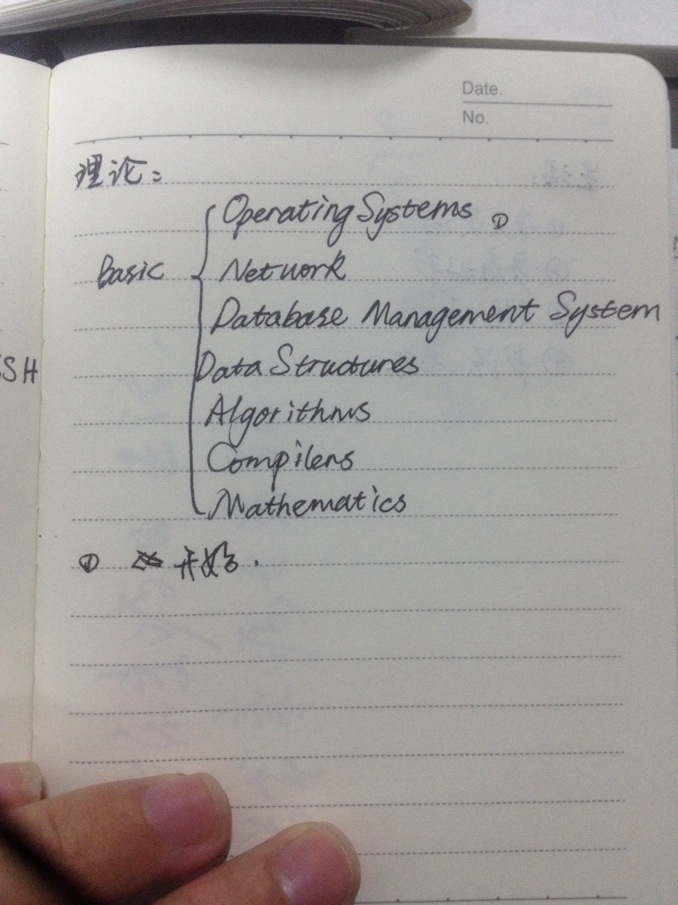 Date.
No.
理论:
Operating Systems ①
Basic { Network
Database Management System
Data Structures
Algorithms
Compilers
Mathematics
① 开始.
SH